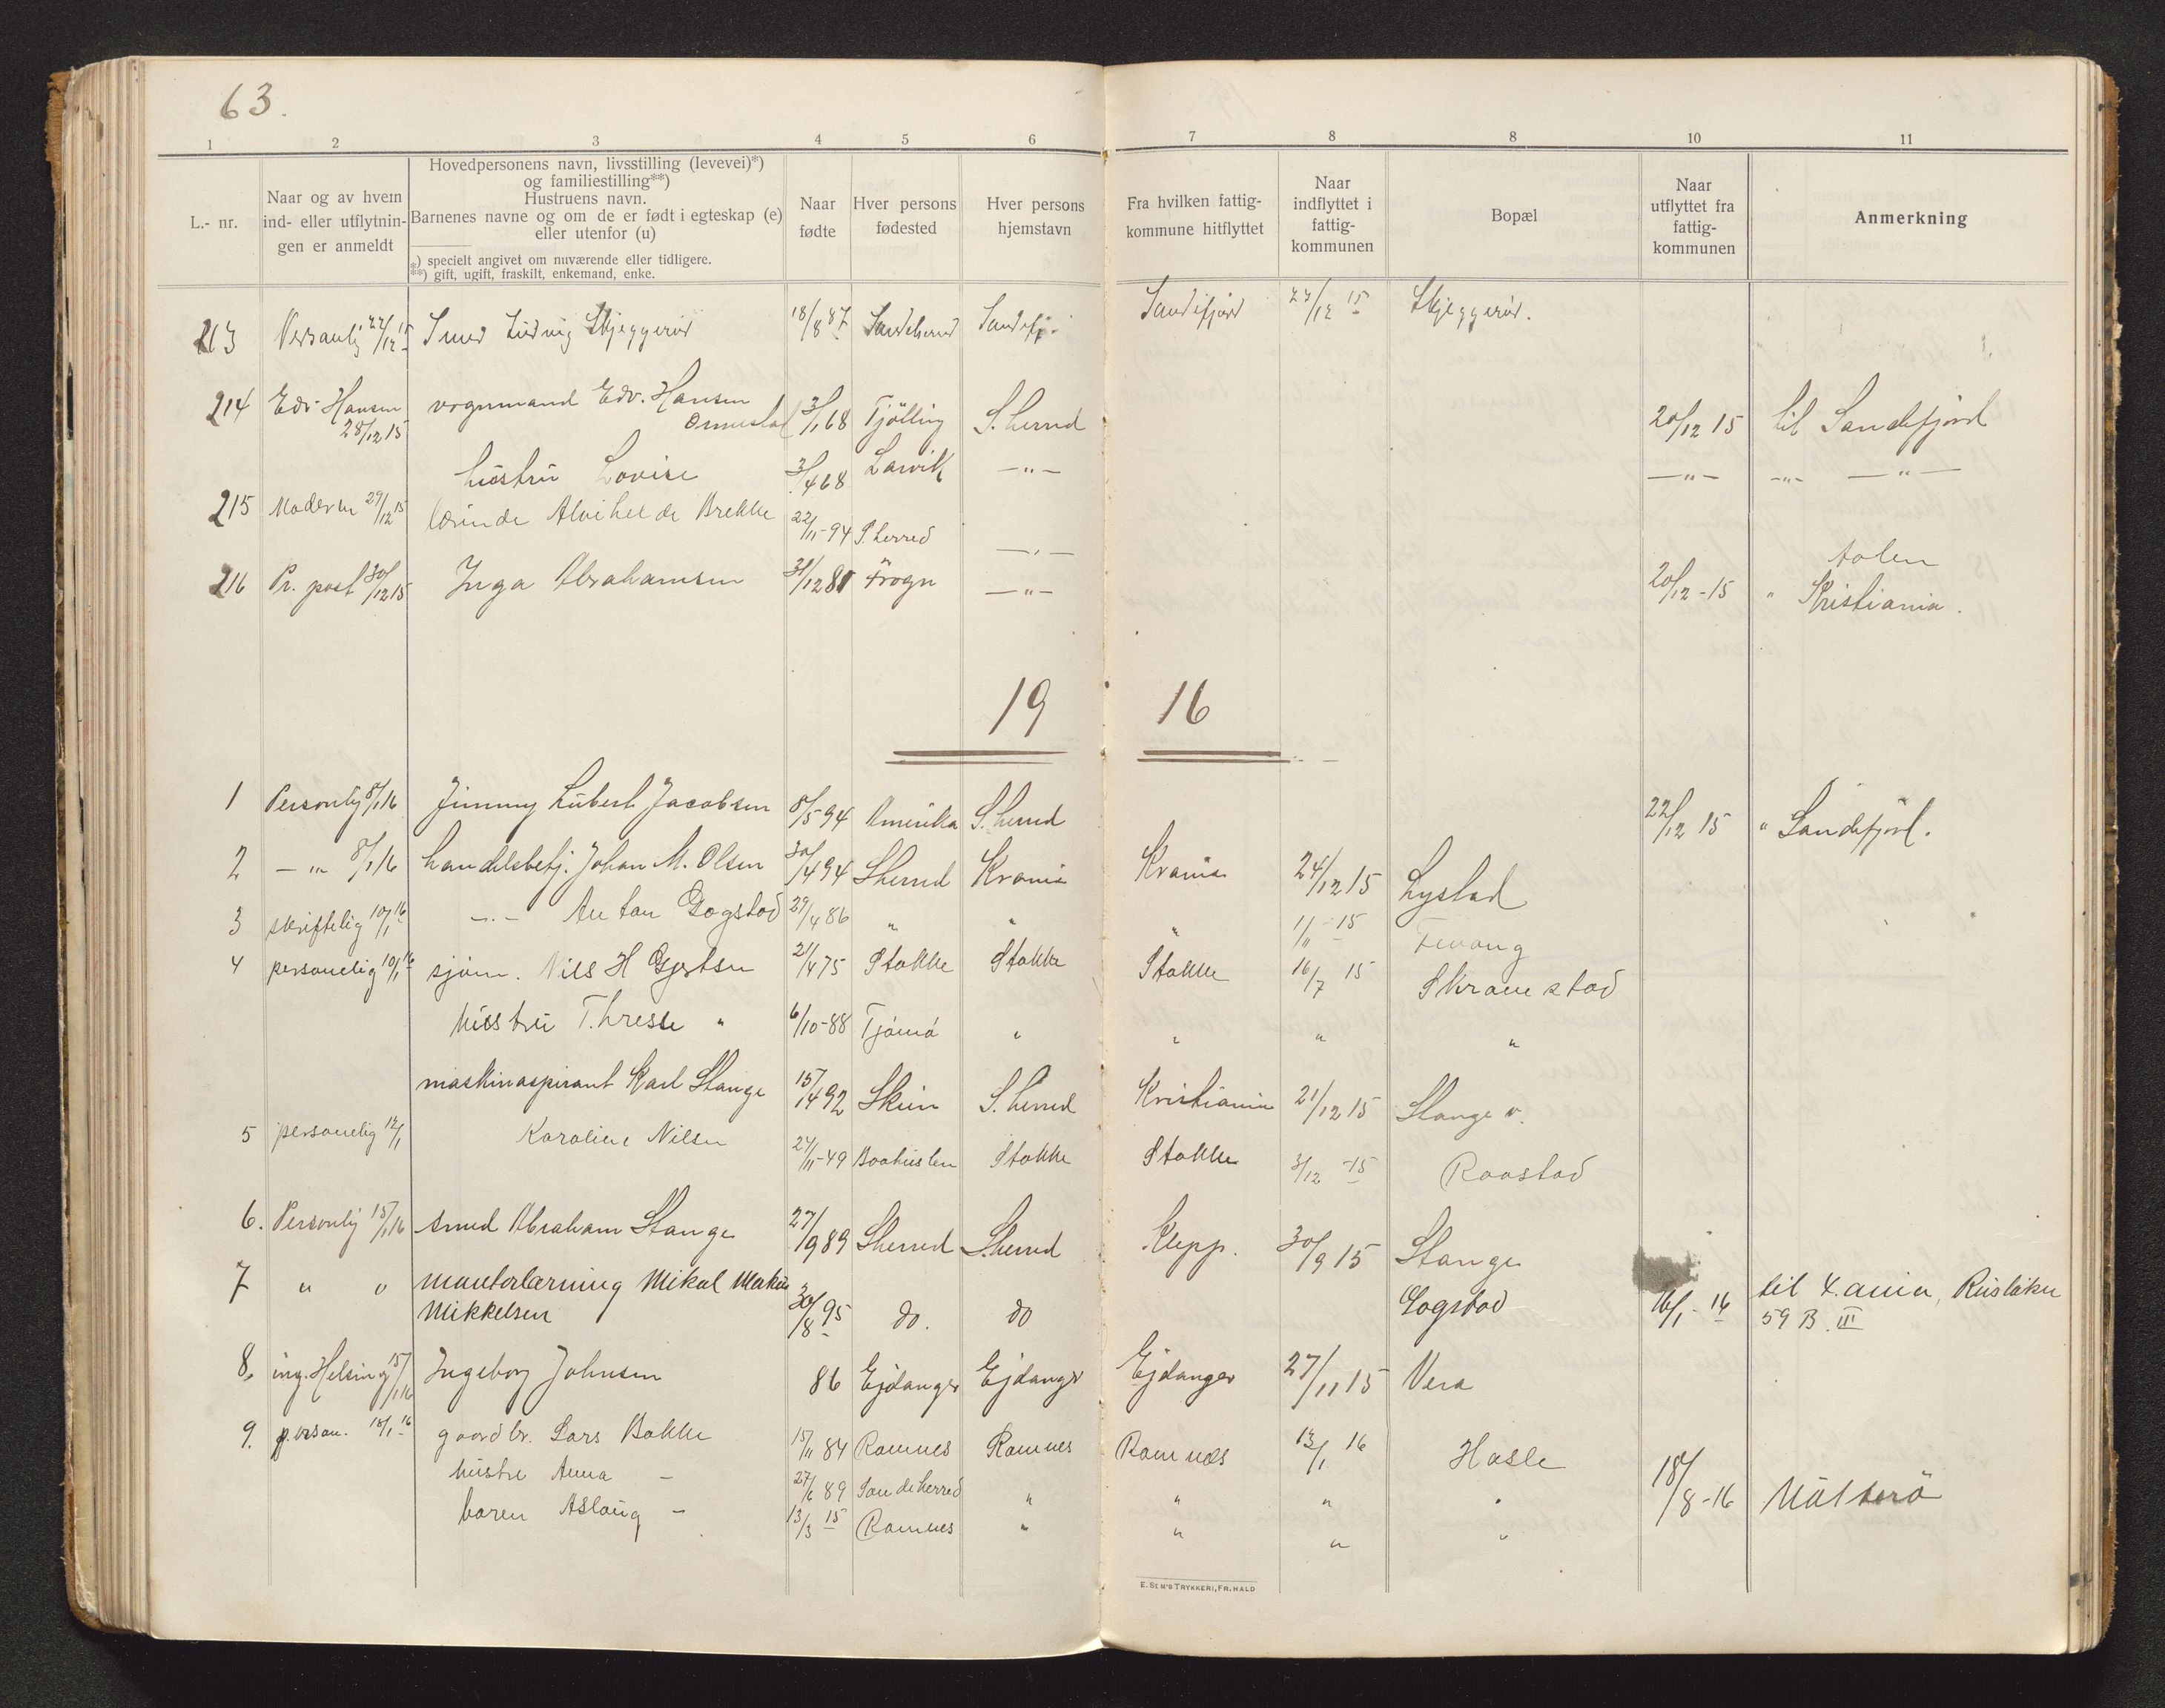 63.
1 2 3 4 5 6 7 8 8 10 11
L.- nr.
Naar og av hvem
ind- eller utflytnin-
gen er anmeldt
Hovedpersonens navn, livsstilling (levevei)*)
og familiestilling**)
Hustruens navn.
Barnenes navne og om de er født i egteskap (e)
eller utenfor (u)
*) specielt angivet om nuværende eller tidligere.
**) gift, ugift, fraskilt, enkemand, enke.
Naar
fødte
Hver persons
fødested
Hver persons
hjemstavn
Fra hvilken fattig-
kommune hitflyttet
Naar
indflyttet i
fattig-
kommunen
Bopæl
Naar
utflyttet fra
fattig-
kommunen
Anmerkning
213 Ludvig Skjeggerød 18/8 87 Sandeherred Sandefj. Sandefjord 27/12 15 Skjeggerød.
214 Edv. Hansen vognmand Edv. Hansen
28/12 15 Ormestad 3/1 68 Tjölling S. herred 20/12 15 til Sandefjord
hustru Lovise 3/4 68 Larvik —"— —"— —"— —"—
215 Moderen 29/12 15 Brekke 22/11-94 S. herred —"—
Aolen
216 Pr. post 30/12 15 Inga Abrahamsen 31/12 81 Frogn —"— 20/12-15 " Kristiania.
19 16
1 Personlig 8/1 16 Jimmy Lubert Jacobsen 8/5-94 Amerika S. herred 22/12 15 " Sandefjord.
2 —"— 8/1 16 handelsbetj. Johan M. Olsen 30/4 94 Sherred Krania Krania 24/12 15 Lystad
3 skriftelig 10/1 16 —"— Anton Gogstad 29/4 86 " " " 1/11 15 Fevang
4 personelig 10/1 16 sjöm. Nils H Gjertsen 21/4 75 Stokke Stokke Stokke 16/7 15 Skravestad
hustru Threse " 6/10-88 Tjömö " " " "
maskinaspirant Karl Stange 15/4 92 Skien S. herred Kristiania 21/12 15 Stange v.
5 personelig 12/1 Karoline Nilsen 27/11-49 Baahuslen Stokke Stokke 3/12 15 Raastad
6. Personlig 15/1 16 smed Abraham Stange 27/9 89 Sherred Sherred Klepp. 30/9 15 Stange
7 " " Mikal
Mikkelsen 30/8 95 do. do Gogstad 16/1-16 til X.ania,
59 B. III
8. ing. Helsing 15/1 16 Ingeborg Johnsen 86 Ejdanger Ejdanger Ejdanger 27/11 15 Vera
9. person. 18/1 16 gaardbr. Lars Bakke 15/11 84 Ramnes Ramnes Ramnes 13/1 16 Hasle
hustru Anna — 27/6 89 Sandeherred " " " " 18/8-16 Nötterö
baren Aslaug — 13/3 15 Ramnes " " " "
E. SEM'S TRYKKERI, FR.HALD